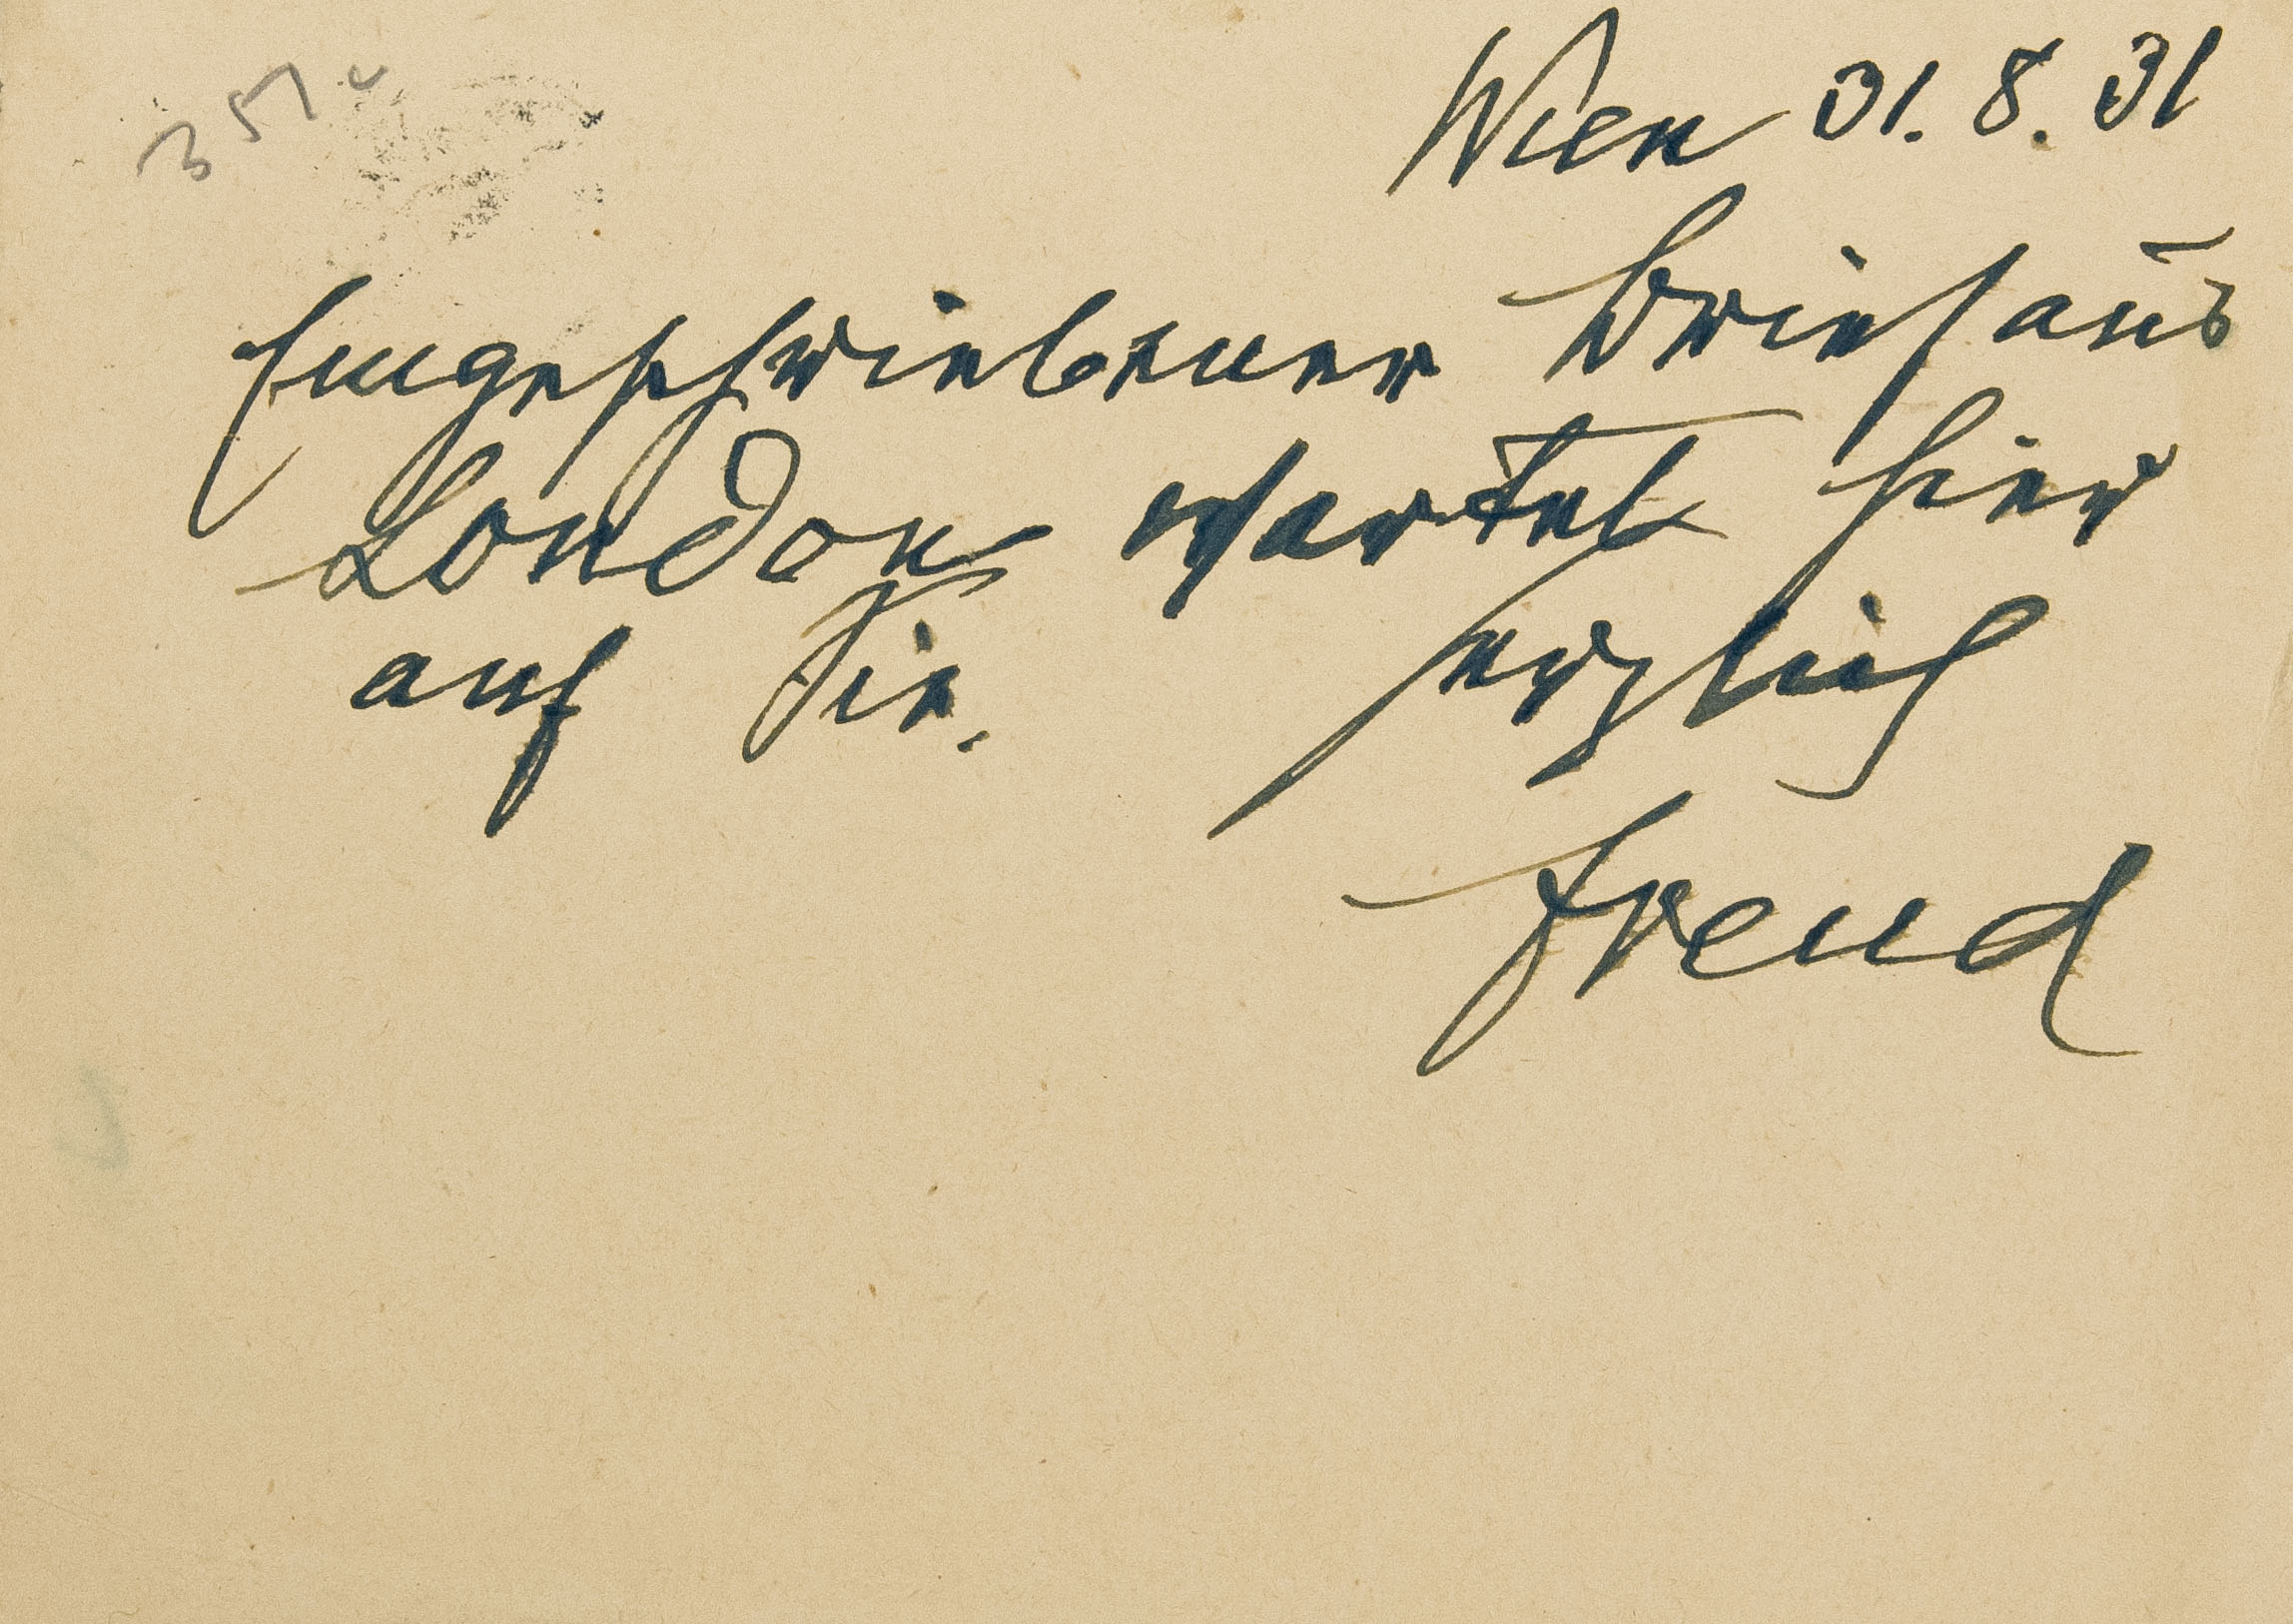 351c
Wien 31. 8. 31
Eingeschriebener Brief aus
London wartet hier
auf Sie.
herzlich
Freud